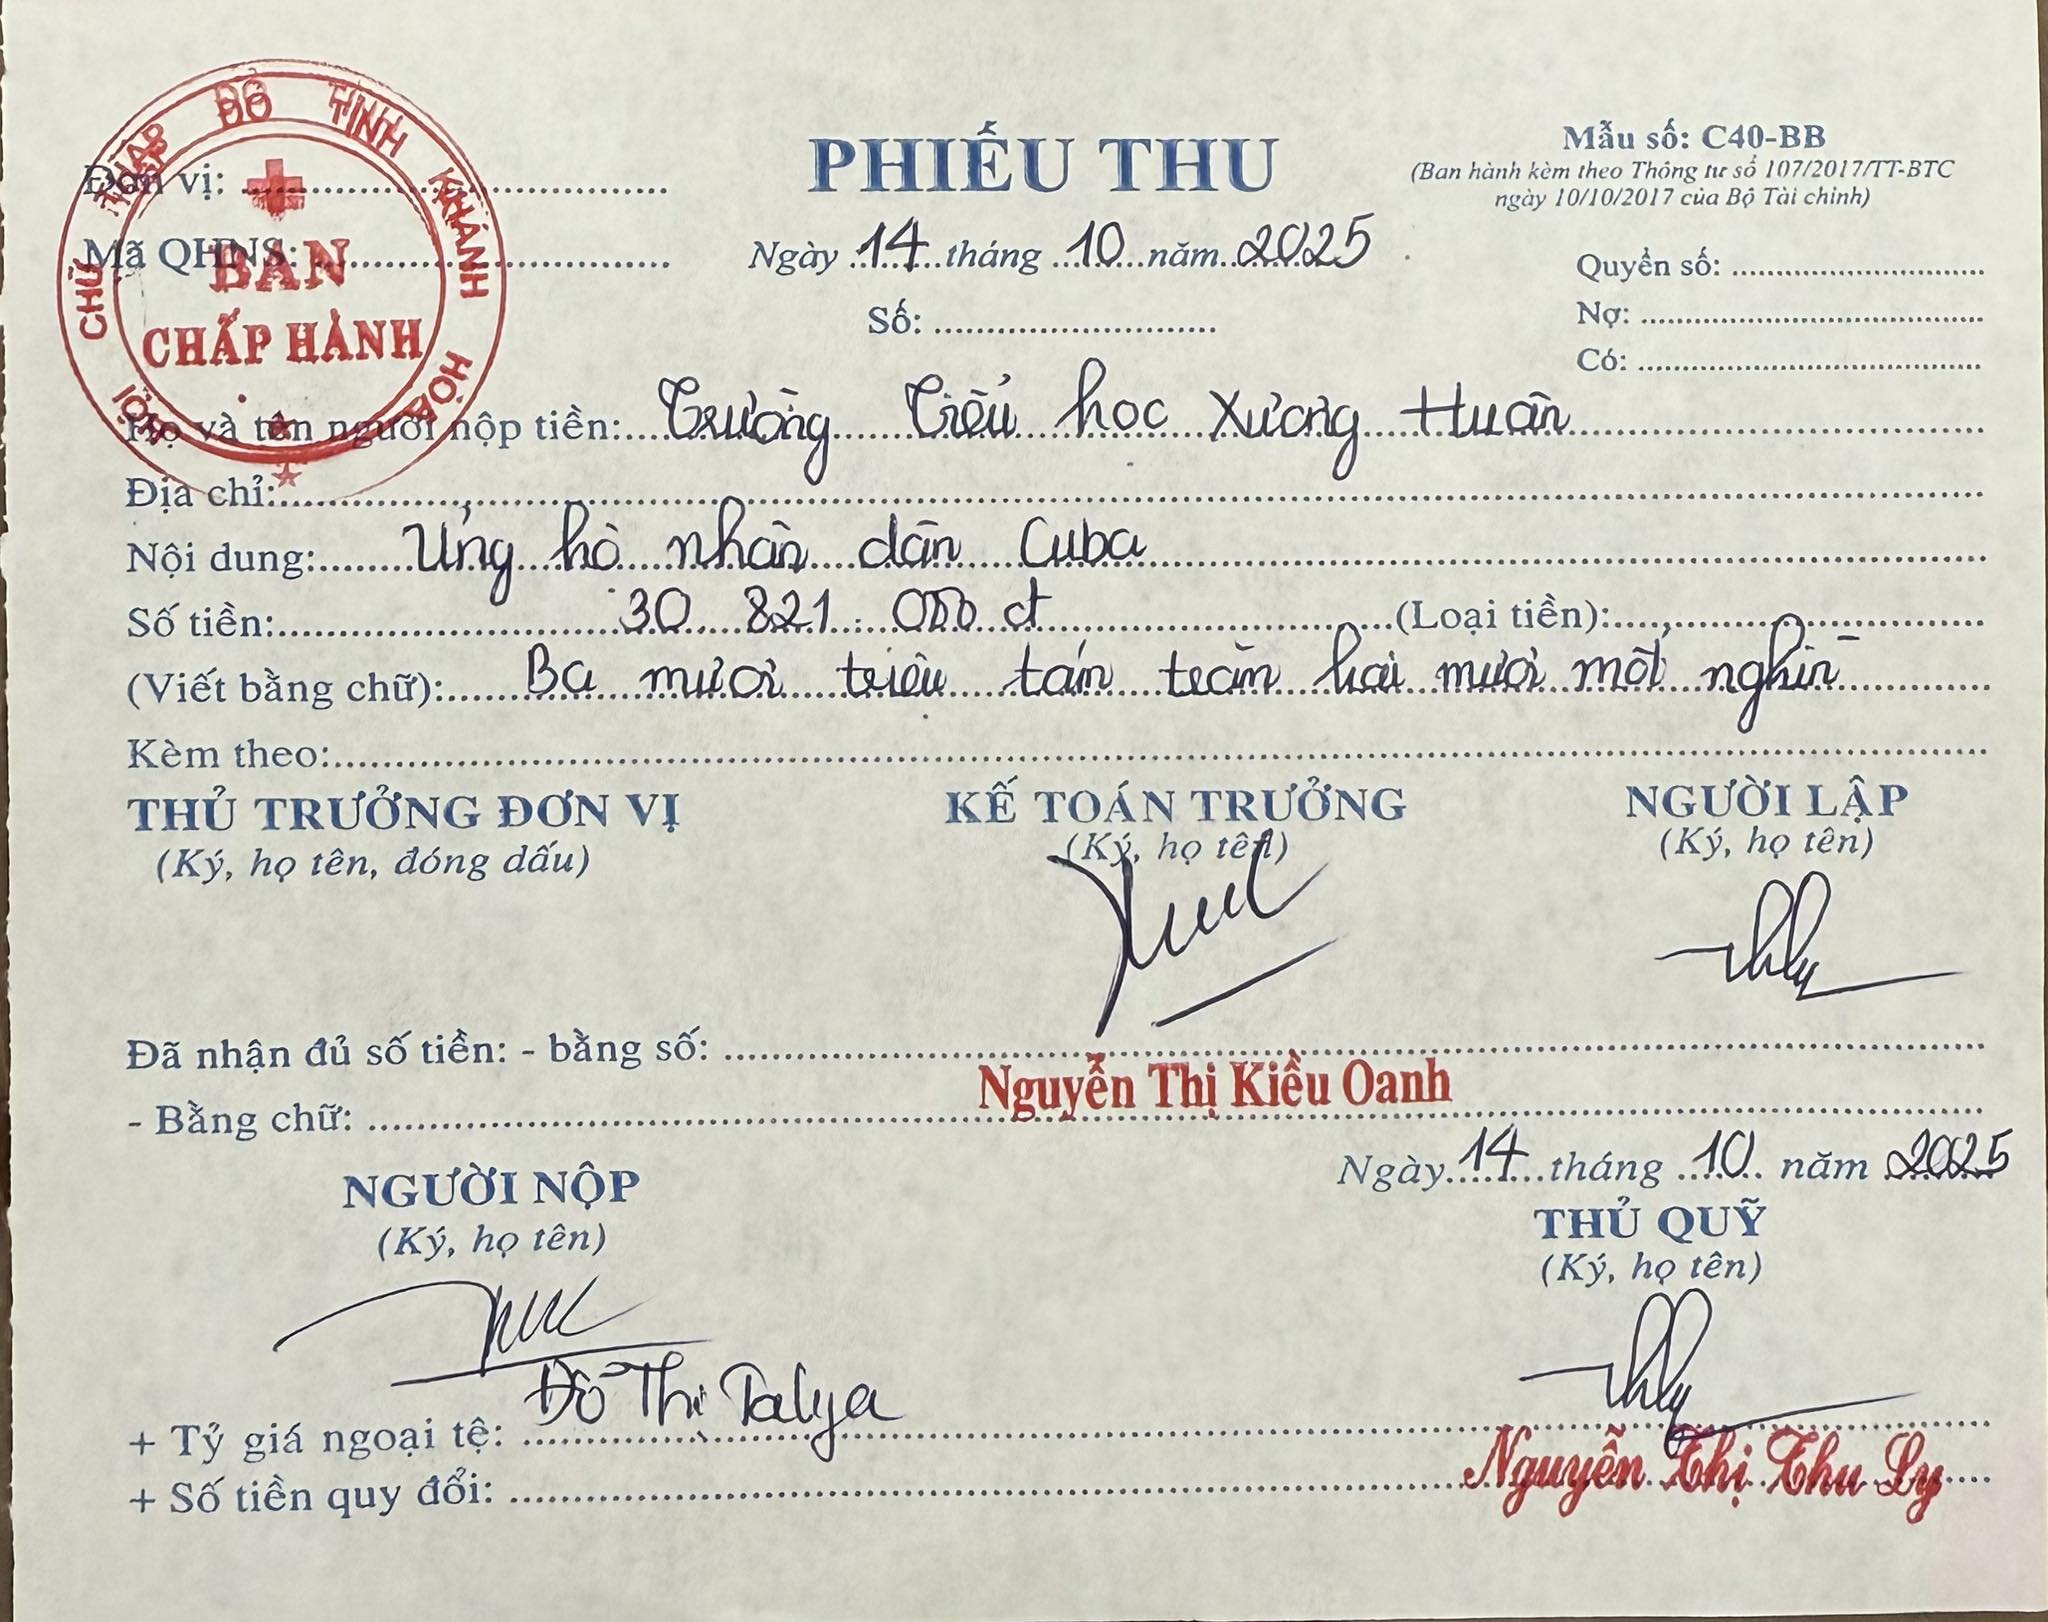 HỘI CHỮ THẬP ĐỎ TỈNH KHÁNH HÒA
BAN
CHẤP HÀNH
Đơn vị:
Mã QHNS:
PHIẾU THU
Ngày 14 tháng 10 năm 2025
Số:
Mẫu số: C40-BB
(Ban hành kèm theo Thông tư số 107/2017/TT-BTC
ngày 10/10/2017 của Bộ Tài chính)
Quyển số:
Nợ:
Có:
Họ và tên người nộp tiền: Trường Tiểu học Xương Huân
Địa chỉ:
Nội dung: Ủng hộ nhân dân Cuba
Số tiền: 30.821.000 đ (Loại tiền):
(Viết bằng chữ): Ba mươi triệu tám trăm hai mươi mốt nghìn
Kèm theo:
THỦ TRƯỞNG ĐƠN VỊ
(Ký, họ tên, đóng dấu)
KẾ TOÁN TRƯỞNG
(Ký, họ tên)
NGƯỜI LẬP
(Ký, họ tên)
Đã nhận đủ số tiền: - bằng số:
Nguyễn Thị Kiều Oanh
- Bằng chữ:
Ngày 14 tháng 10 năm 2025
NGƯỜI NỘP
(Ký, họ tên)
THỦ QUỸ
(Ký, họ tên)
Đỗ Thị Talya
+ Tỷ giá ngoại tệ:
Nguyễn Thị Thu Ly
+ Số tiền quy đổi: